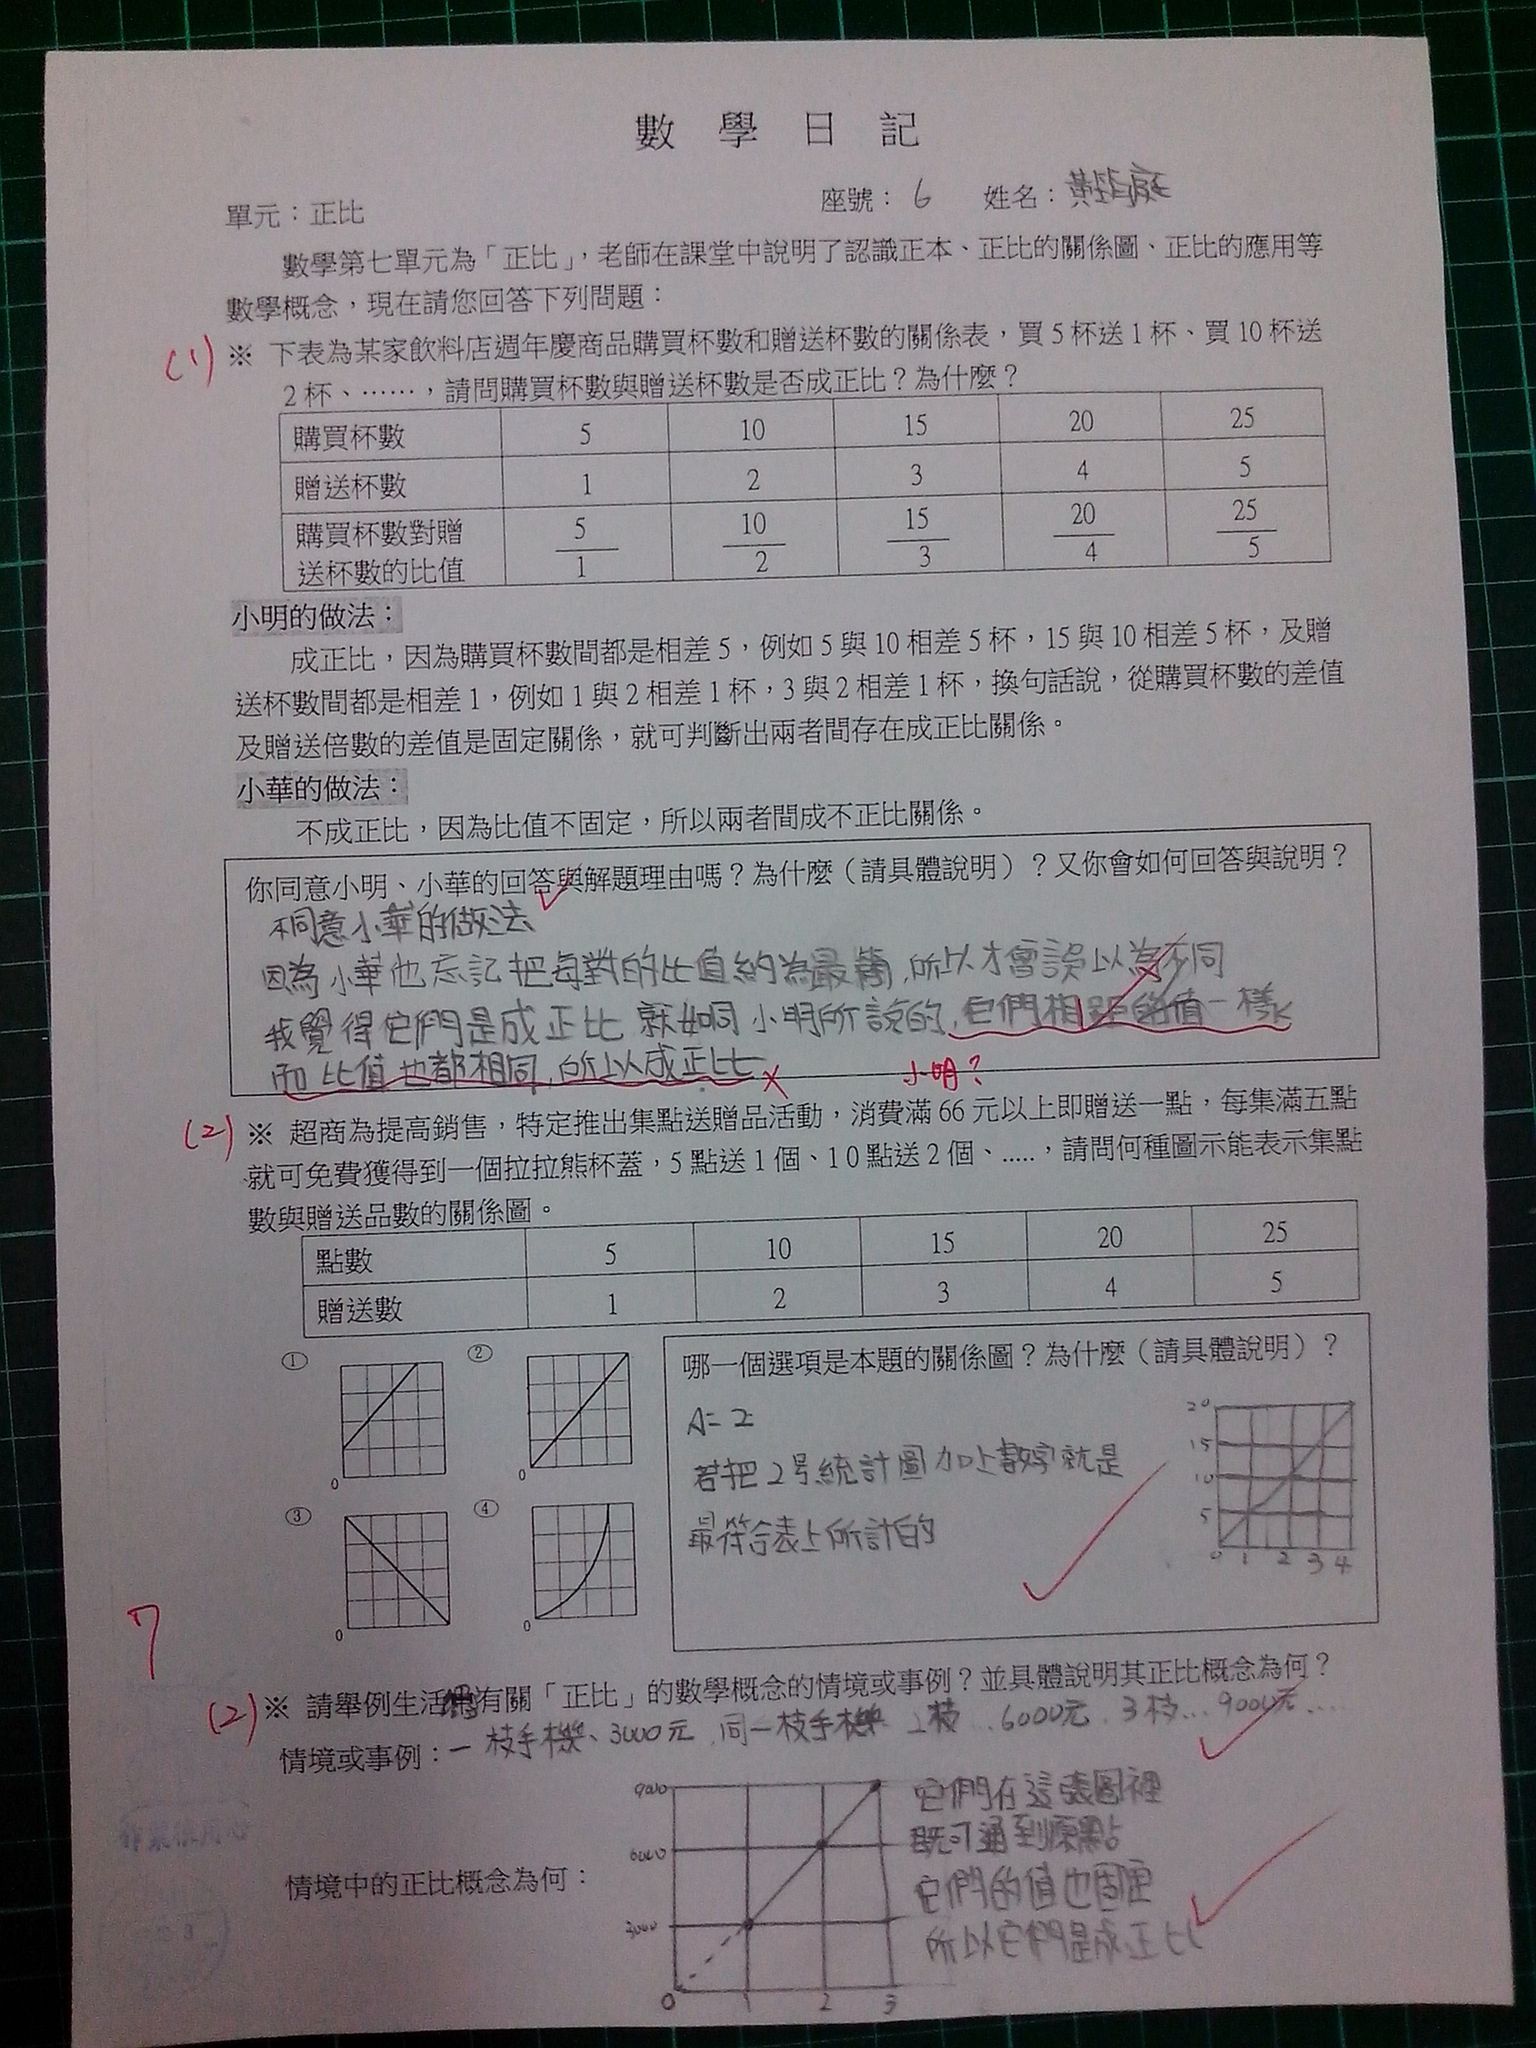 數學日記
單元：正比
座號：6 姓名：黃
數學第七單元為「正比」，老師在課堂中說明了認識正本、正比的關係圖、正比的應用等
數學概念，現在請您回答下列問題：
(1) ※ 下表為某家飲料店週年慶商品購買杯數和贈送杯數的關係表，買5杯送1杯、買10杯送
2杯、……，請問購買杯數與贈送杯數是否成正比？為什麼？
購買杯數 5 10 15 20 25
贈送杯數 1 2 3 4 5
購買杯數對贈 5 10 15 20 25
送杯數的比值 1 2 3 4 5
小明的做法：
成正比，因為購買杯數間都是相差5，例如5與10相差5杯，15與10相差5杯，及贈
送杯數間都是相差1，例如1與2相差1杯，3與2相差1杯，換句話說，從購買杯數的差值
及贈送倍數的差值是固定關係，就可判斷出兩者間存在成正比關係。
小華的做法：
不成正比，因為比值不固定，所以兩者間成不正比關係。
你同意小明、小華的回答與解題理由嗎？為什麼（請具體說明）？又你會如何回答與說明？
不同意小華的做法
因為小華他忘記把每對的比值約為最簡，所以才會誤以為不同
我覺得它們是成正比 就如同小明所說的，它們相距的值一樣
而比值也都相同，所以成正比
小明？
(2) ※ 超商為提高銷售，特定推出集點送贈品活動，消費滿66元以上即贈送一點，每集滿五點
就可免費獲得到一個拉拉熊杯蓋，5點送1個、10點送2個、.....，請問何種圖示能表示集點
數與贈送品數的關係圖。
點數 5 10 15 20 25
贈送數 1 2 3 4 5
① ②
0 0
③ ④
0 0
哪一個選項是本題的關係圖？為什麼（請具體說明）？
A=2
若把2号統計圖加上數字就是
最符合表上所計的
20
15
10
5
0 1 2 3 4
7
(2) ※ 請舉例生活有關「正比」的數學概念的情境或事例？並具體說明其正比概念為何？
情境或事例：一枝手機、3000元，同一枝手機 2枝…6000元，3枝…9000元……
情境中的正比概念為何：
9000
6000
3000
0 1 2 3
它們在這張圖裡
既可通到原點
它們的值也固定
所以它們是成正比